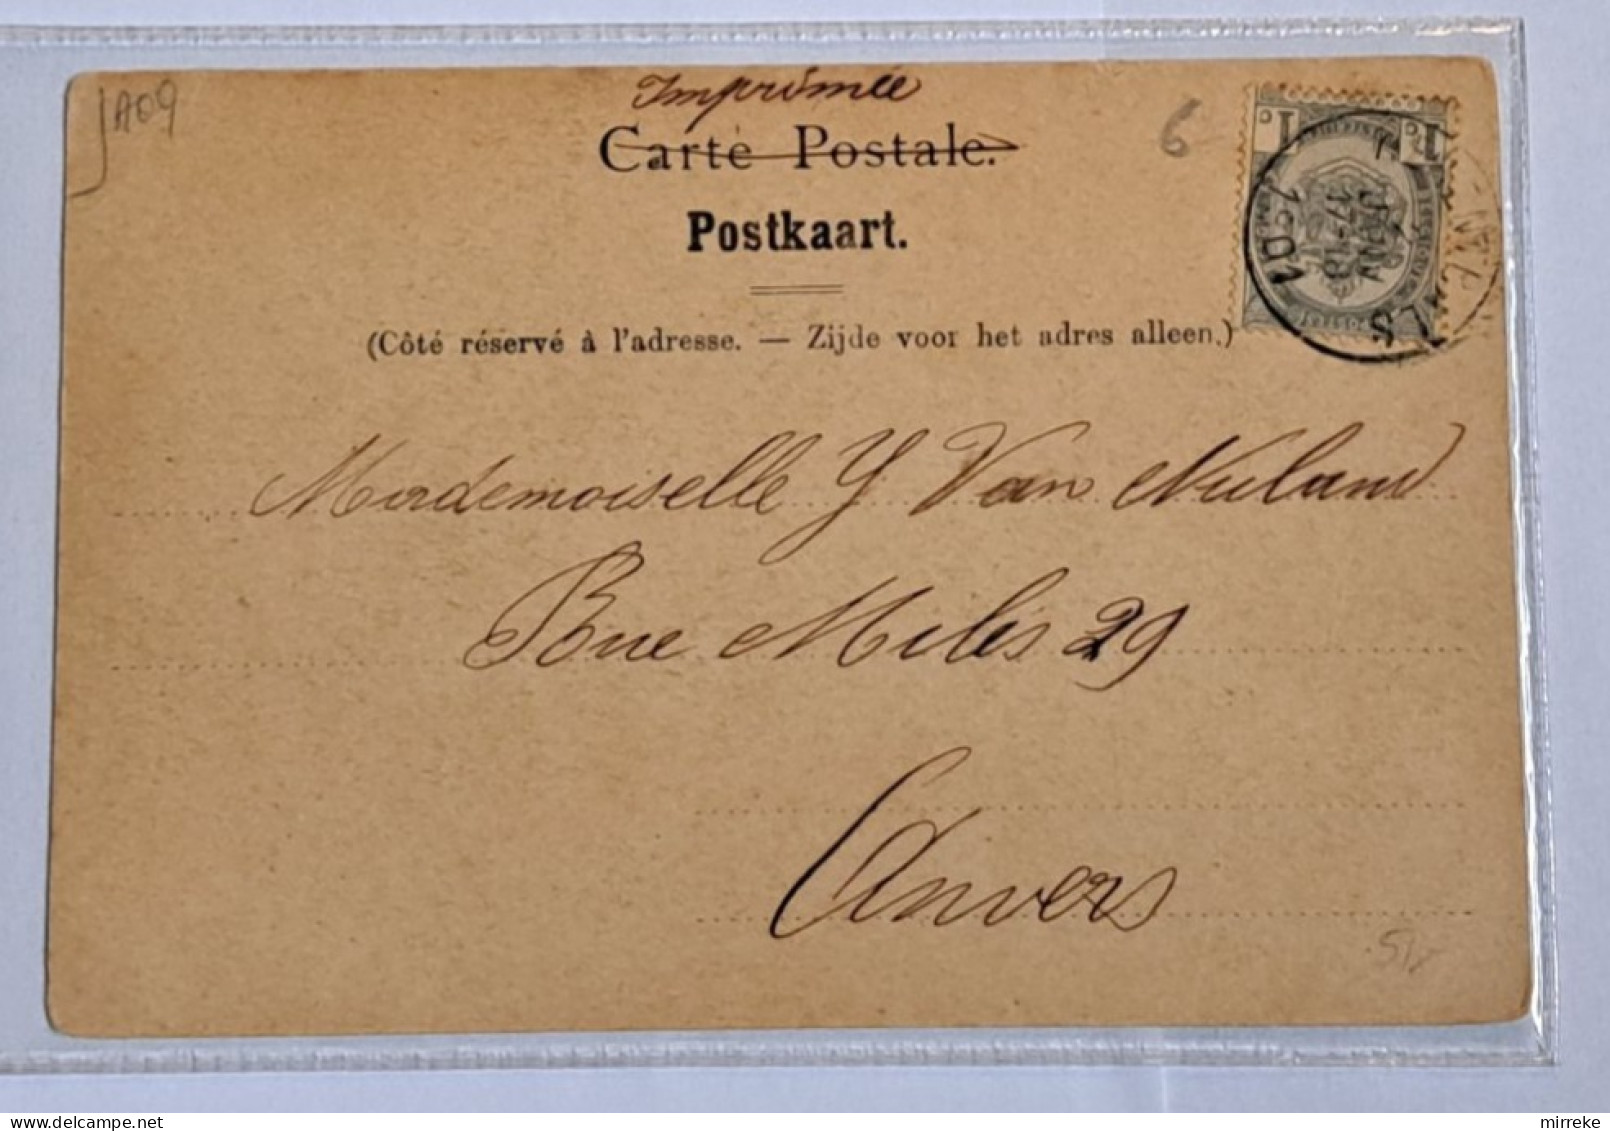 JA09
Imprimée
6
Carte Postale.
Postkaart.
(Côté réservé à l'adresse. — Zijde voor het adres alleen.)
1c 1c
17-18
1901
Mademoiselle Y Van Nuland
Rue Milis 29
Anvers
mirreke